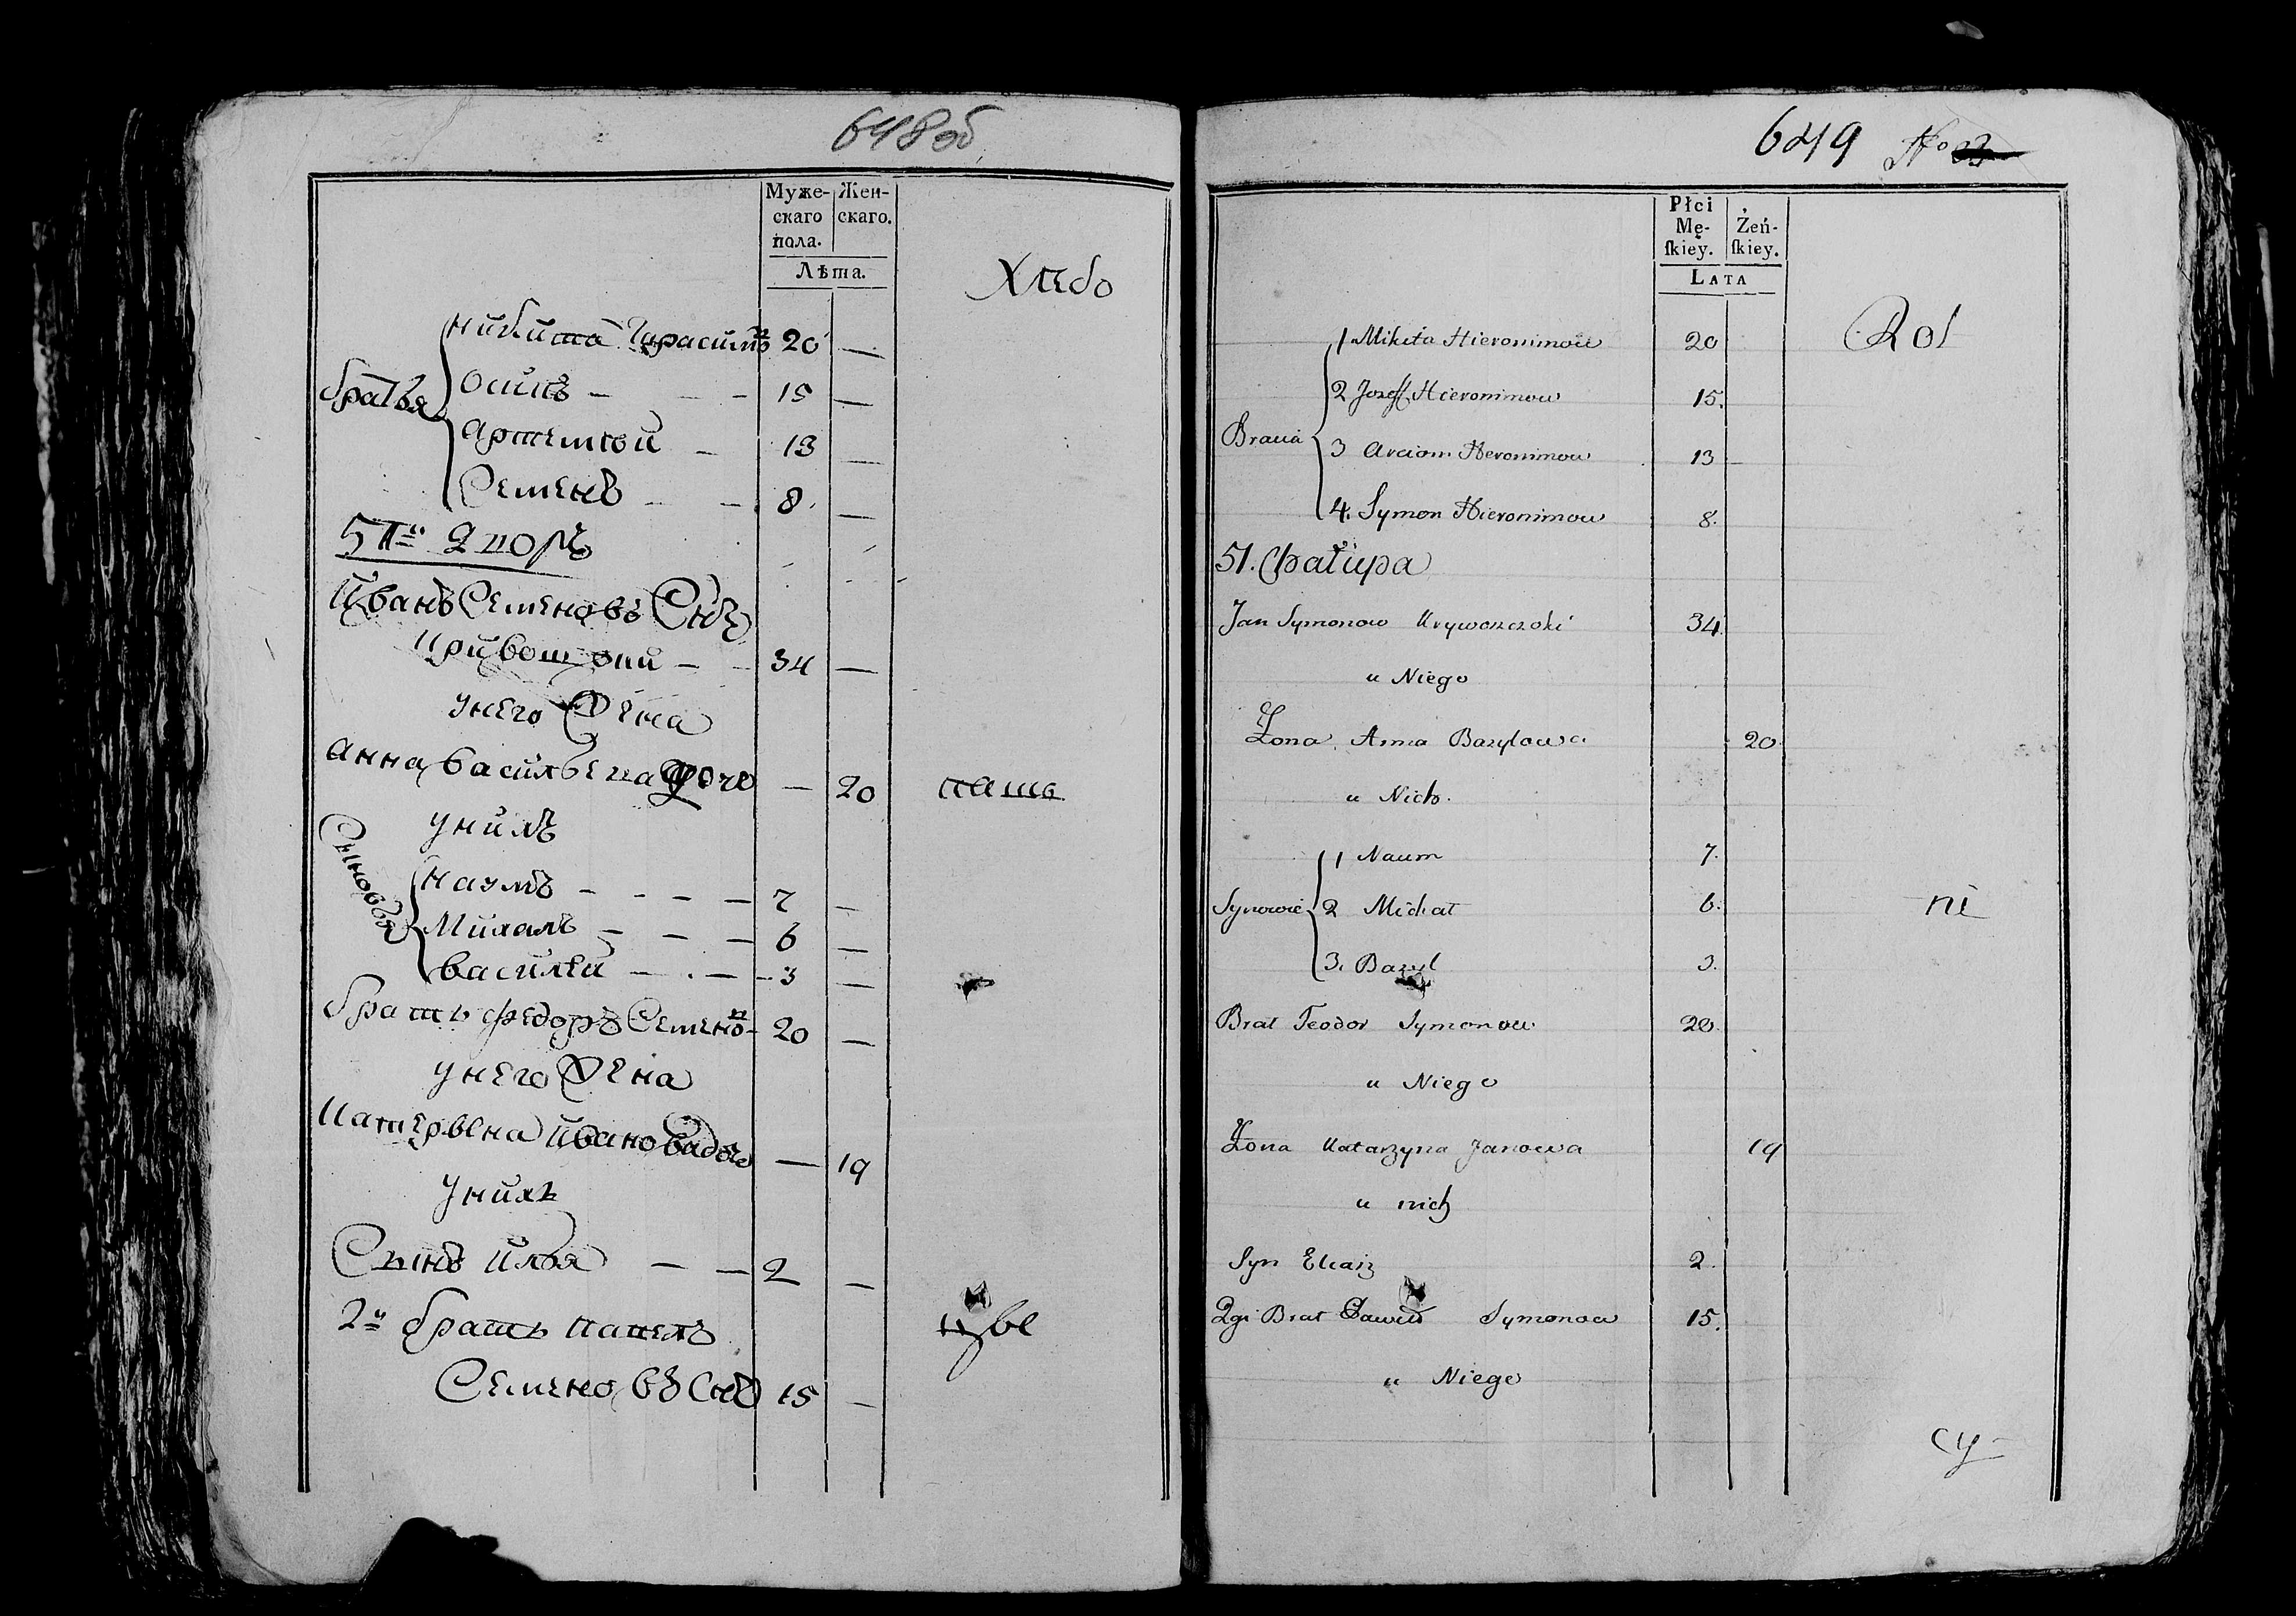 648об
Муже- Жен-
скаго скаго.
пола.
Лѣта.
Хлебо
Никита Гарасимо 20 —
братья
Осипъ — — — 15 —
Артемїй — 13 —
Семенъ — — 8 —
51й дворъ
Иванъ Семеновъ Снъ
Кривошокии — — 34 —
унего Жена
Анна Васильева дочь — 20
паш
унихъ
Сыновья
Наумъ — — — — 7 —
Михалъ — — — 6 —
Василѣи — — — 3 —
братъ Федоръ Семено 20 —
унего Жена
Катерына Иванова дочь — 19
унихъ
Сынъ Илья — — 2 —
2й братъ Павелъ
Семеновъ Снъ 15 —
649 No
Płci
Mę- Żeń-
ſkiey. ſkiey.
LATA
Rol
1 Mikita Hieronimow 20
2 Jozeff Hieronimow 15.
Bracia
3 Arciom Hieronimow 13
4. Symon Hieronimow 8.
51. Фатира
Jan Symonow Krywoszoki 34
u Niego
Żona Anna Bazylowa 20
u Nich.
1 Naum 7.
Synowie 2 Michał 6.
ni
3. Bazyl 3.
Brat Teodor Symonow 20.
u Niego
Żona Katarzyna Janowa 19
u nich
Syn Eliasz 2.
2gi Brat Symonow 15.
u Niego
cy-